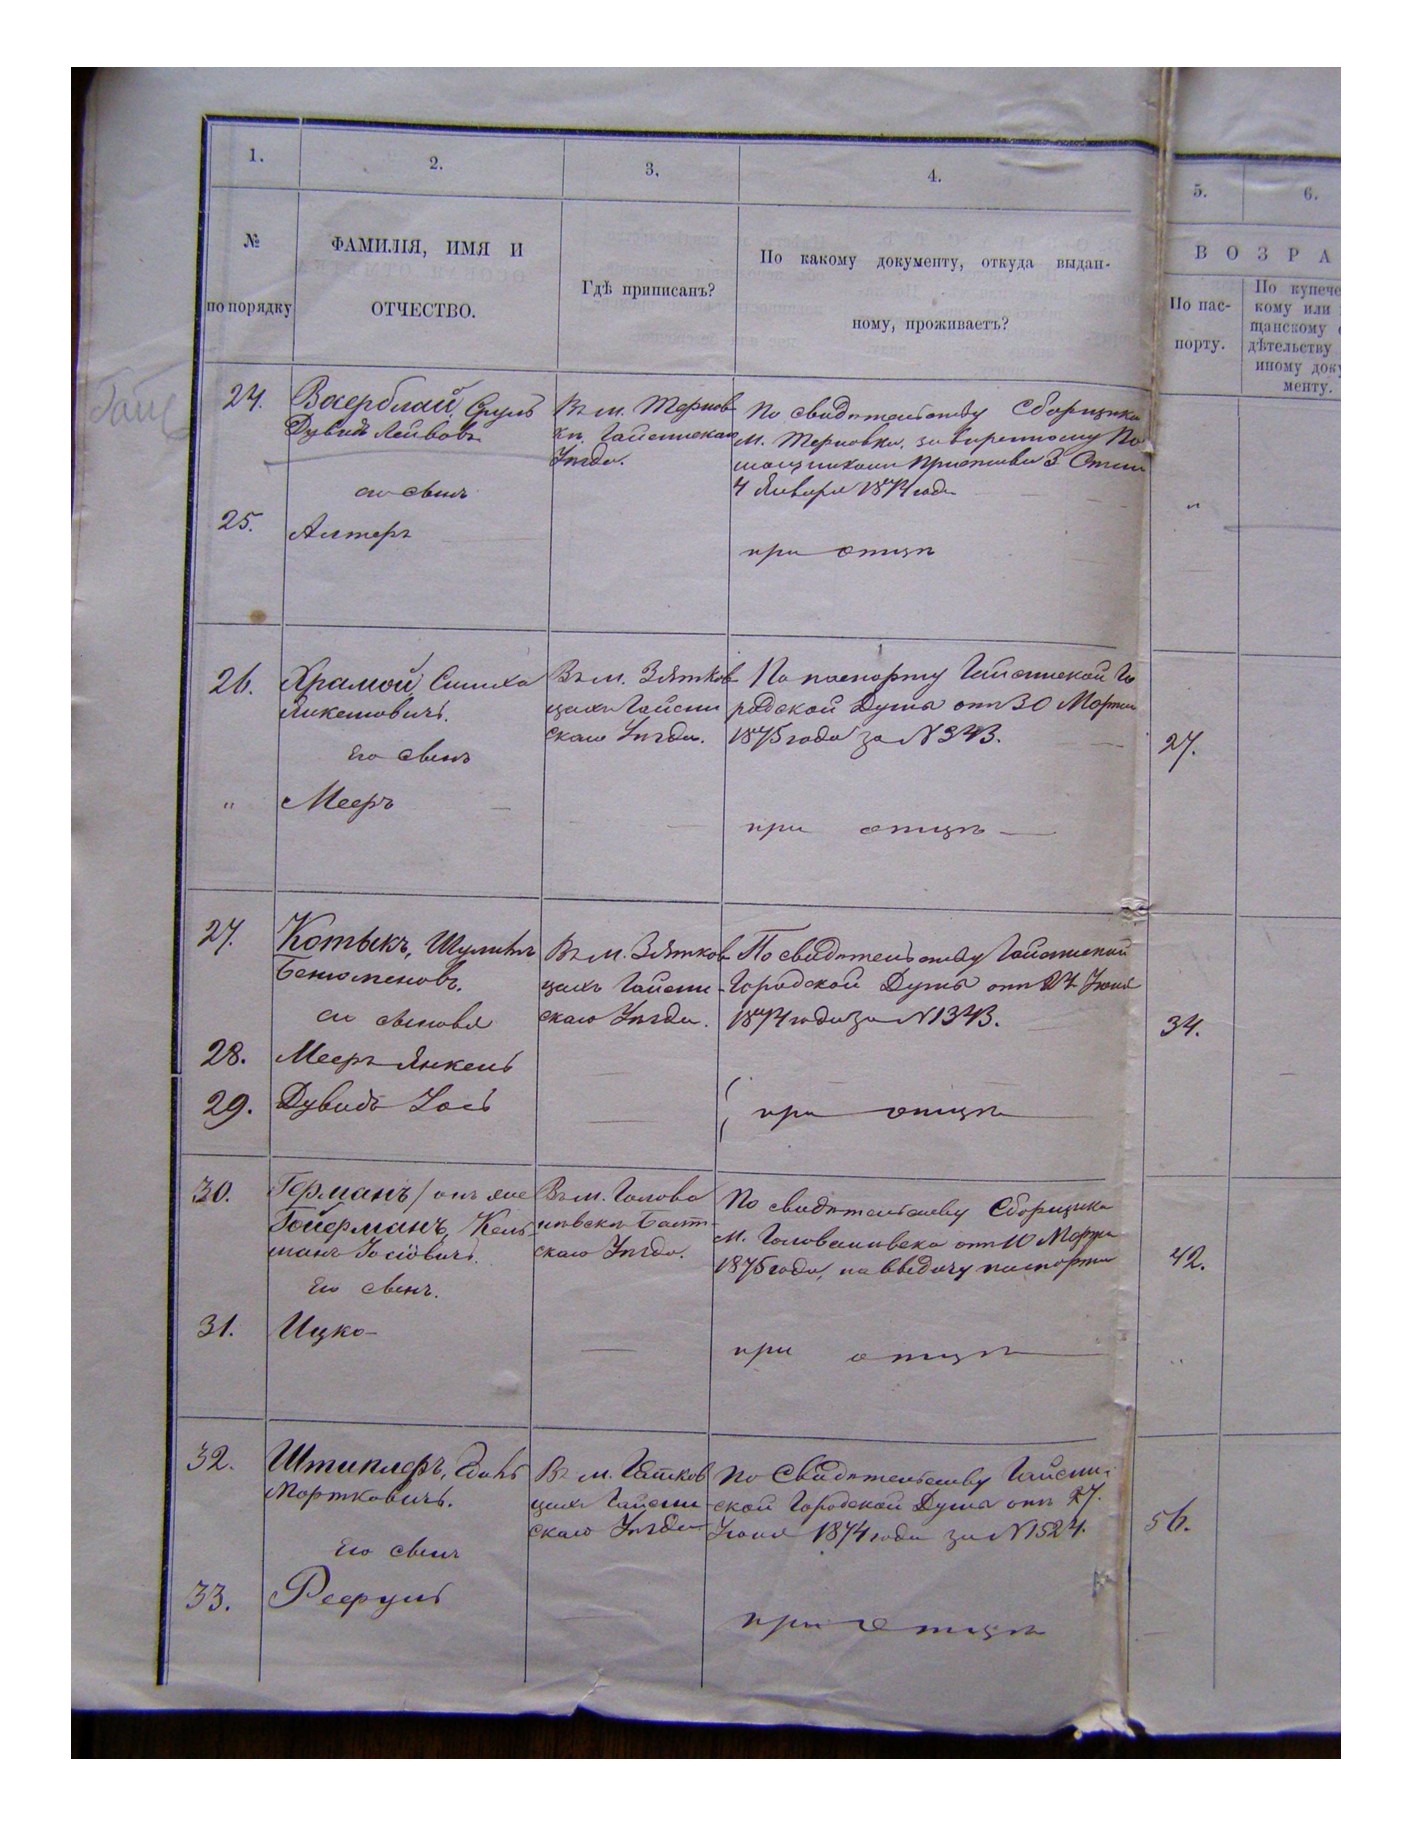 1.
2.
3.
4.
5.
6.
№
по порядку
ФАМИЛІЯ, ИМЯ И
ОТЧЕСТВО.
Гдѣ приписанъ?
По какому документу, откуда выдан-
ному, проживаетъ?
ВОЗРА
По пас-
порту.
По купече
кому или
щанскому
дѣтельству
иному доку
менту.
24.
Ваерблай, Сруль
Дувидъ Лейбовъ
его сынъ
Въ м. Тернов
кѣ Гайсинскаго
Уѣзда.
По свидѣтельству Сборщика
м. Терновки,
4 Января 1874 года
25.
Алтеръ
при отцѣ
26.
Храмой Симха
Янкелювичъ.
Его сынъ
Въ м. Зятков
цахъ Гайсин
скаго Уѣзда.
По паспорту Гайсинской Го
родской Думы отъ 30 Марта
1875 года за N 343.
27.
"
Мееръ
при отцѣ
27.
Котыкъ, Шулимъ
Бенюменовъ.
его сыновья
Въ м. Зятков
цахъ Гайсин-
скаго Уѣзда.
По свидѣтельству Гайсинской
Городской Думы отъ 27 Іюня
1874 года за N 1343.
34.
28.
Мееръ Янкель
29.
Дувидъ Іось
при отцѣ
30.
Германъ / онъ же
Гойерманъ, Кель-
манъ Іосіовичъ.
Его сынъ.
Въ м. Голова
невскѣ Балт-
скаго Уѣзда.
По свидѣтельству Сборщика
м. Голованевска отъ 10 Марта
1875 года, на выдачу паспорта
42.
31.
Ицко
при отцѣ
32.
Штиплеръ,
Мортковичъ.
Его сынъ
Въ м.
цахъ Гайсин-
скаго Уѣзда
По Свидѣтельству Гайсин-
ской Городской Думы отъ 27.
Іюня 1874 года за N 1524.
56.
33.
Рефуль
при отцѣ